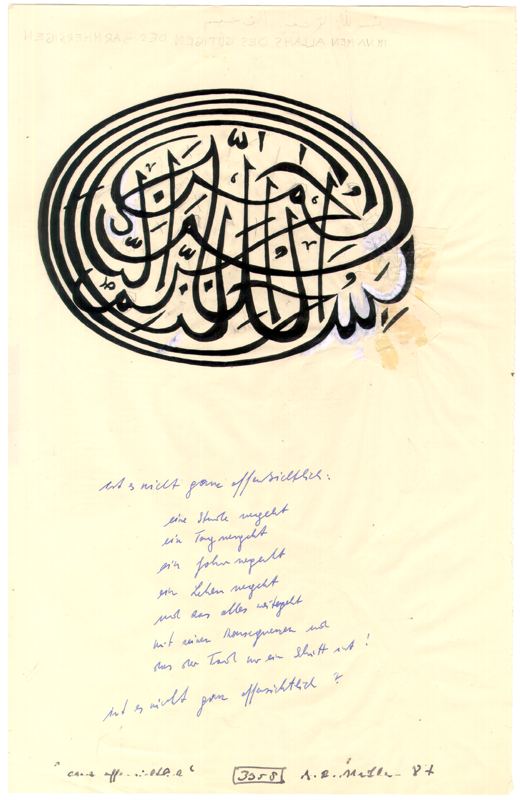 IM NAMEN ALLAHS DES GÜTIGEN DES BARMHERZIGEN
بسم الله الرحمن الرحيم
ist es nicht ganz offensichtlich:
eine Stunde vergeht
ein Tag vergeht
ein Jahr vergeht
ein Leben vergeht
und das alles weitergeht
mit seinen Konsequenzen und
das der Tod nur ein Schritt ist!
ist es nicht ganz offensichtlich?
"ganz offensichtlich" 87